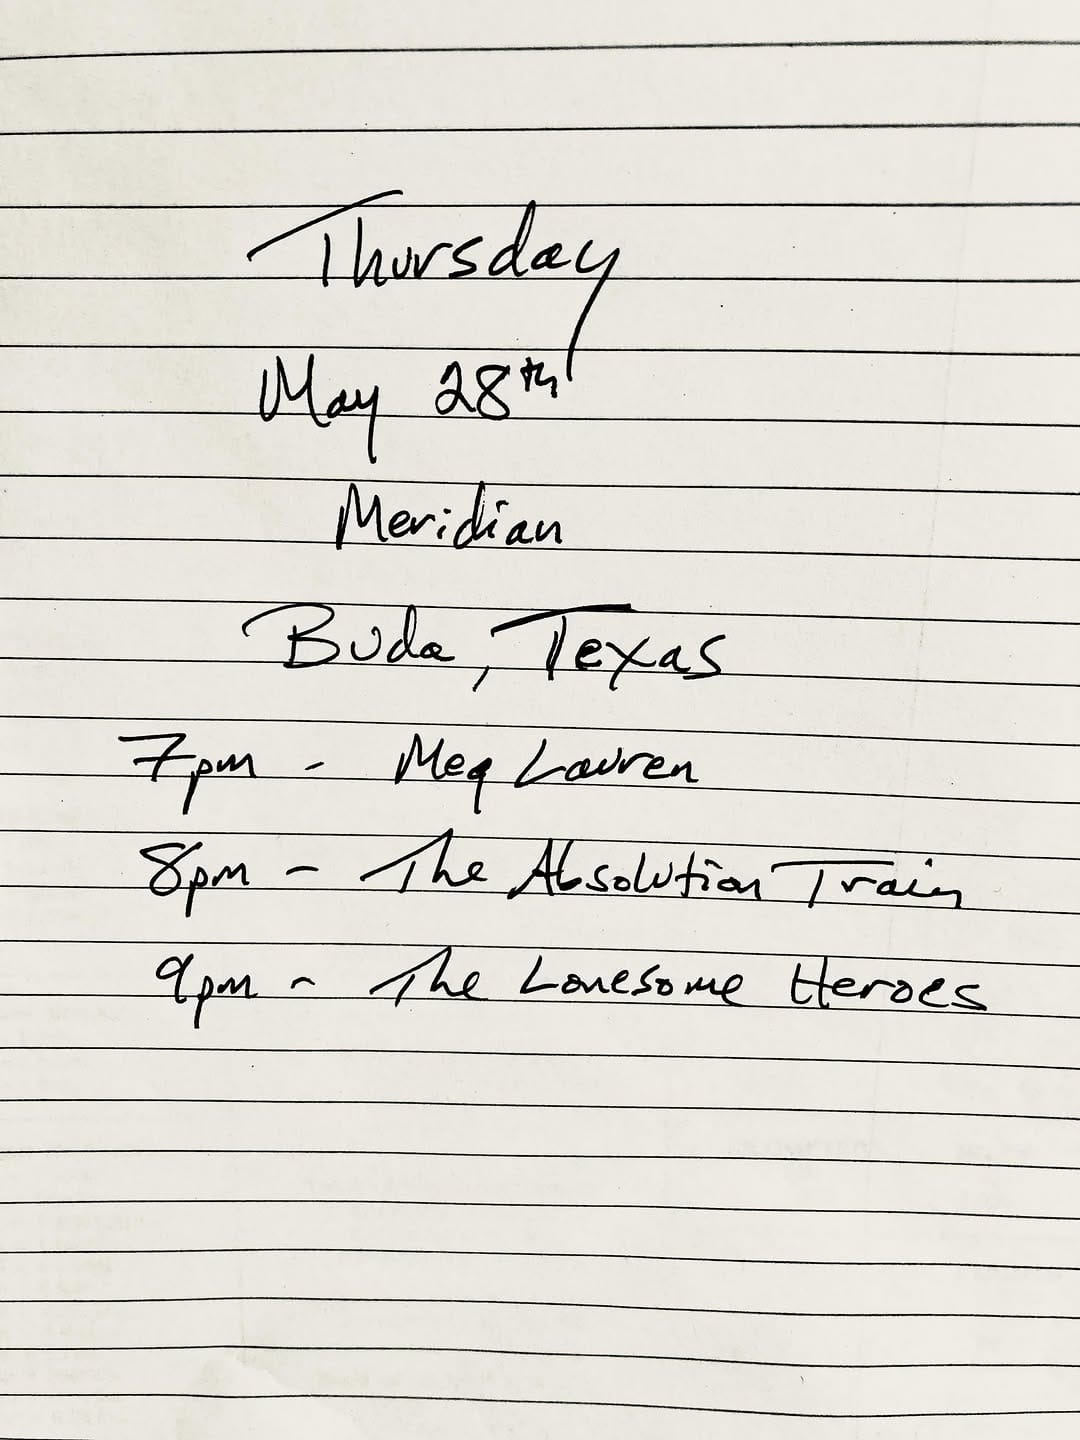 Thursday
May 28th
Meridian
Buda, Texas
7pm - Meg Lauren
8pm - The Absolution Train
9pm - The Lonesome Heroes